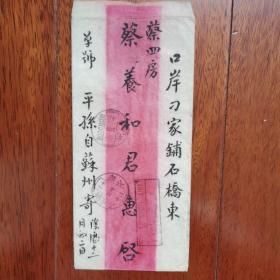 口岸刁家鋪石橋東
蔡四房
蔡養和君惠啓
平孫自蘇州寄